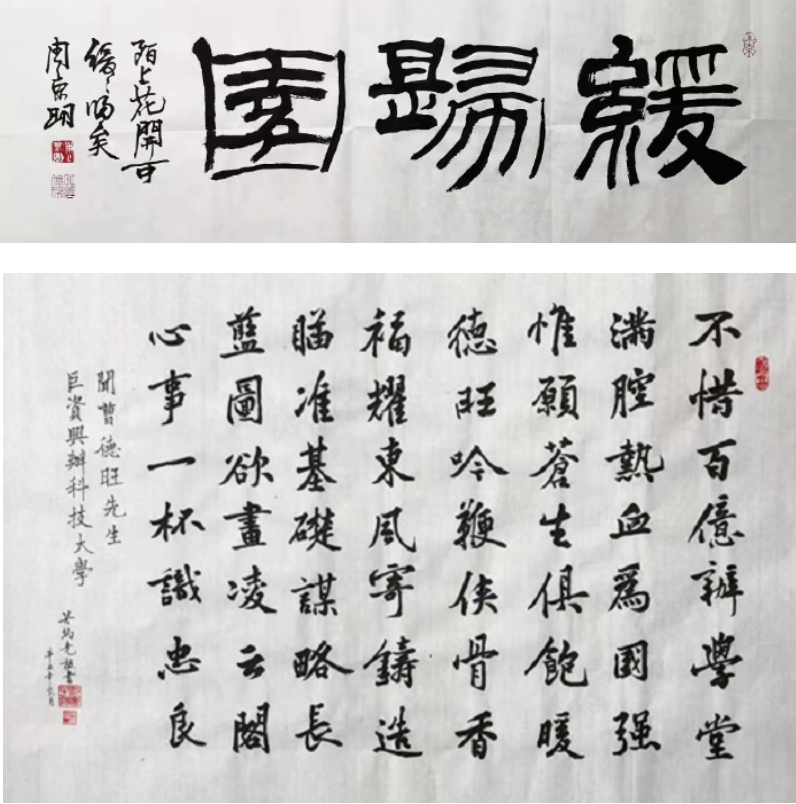 緩歸園
陌上花開可
緩緩歸矣
不惜百億辦學堂
滿腔熱血爲國强
惟願蒼生俱飽暖
德旺吟鞭俠骨香
福耀東風寄鑄造
瞄准基礎謀略長
藍圖欲畫凌云閣
心事一杯識忠良
聞曹德旺先生
巨資興辦科技大學